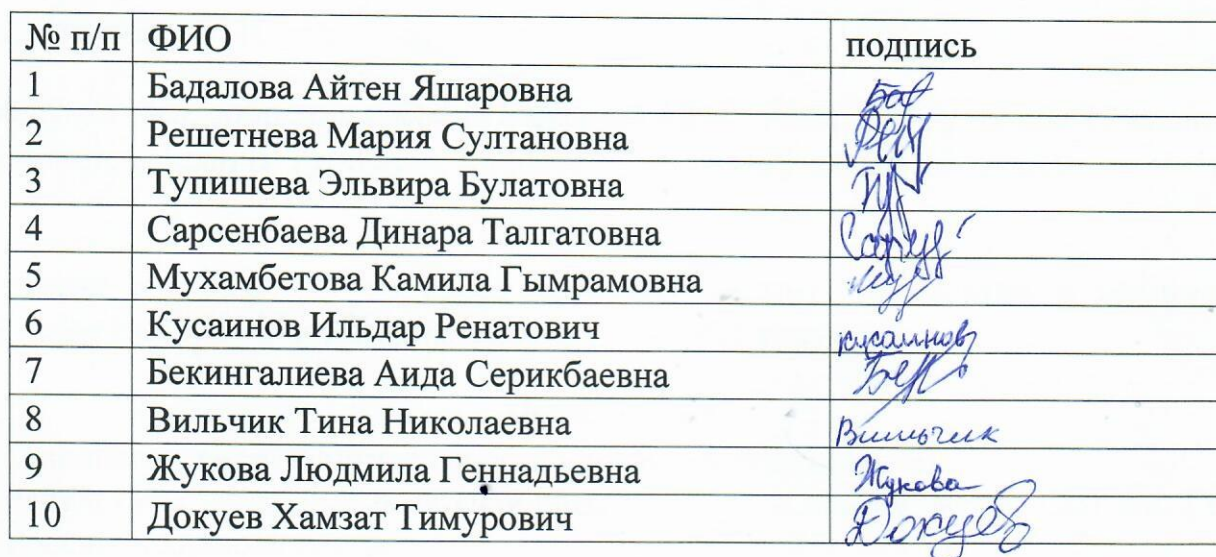 № п/п ФИО подпись
1 Бадалова Айтен Яшаровна Бад
2 Решетнева Мария Султановна Реш
3 Тупишева Эльвира Булатовна
4 Сарсенбаева Динара Талгатовна
5 Мухамбетова Камила Гымрамовна
6 Кусаинов Ильдар Ренатович кусаинов
7 Бекингалиева Аида Серикбаевна
8 Вильчик Тина Николаевна Вильчик
9 Жукова Людмила Геннадьевна Жукова
10 Докуев Хамзат Тимурович Докуев